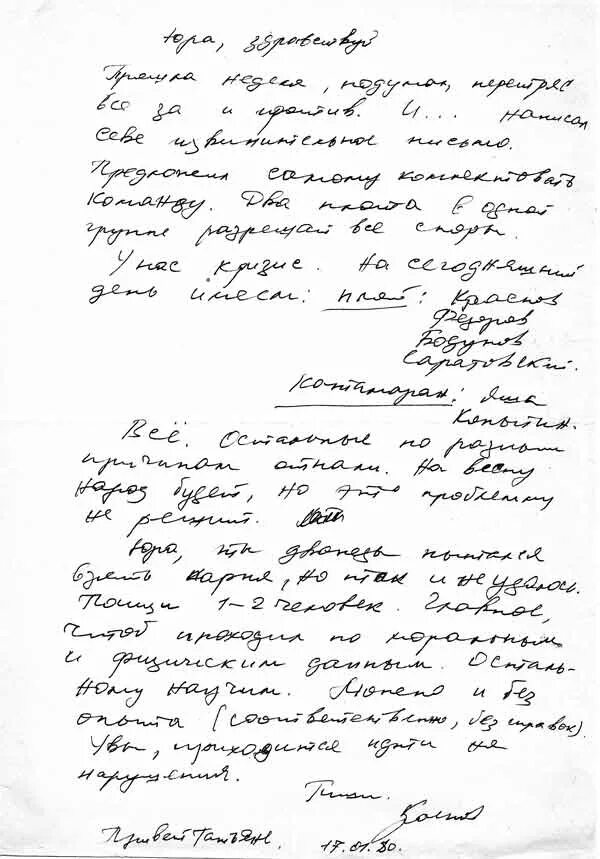 Юра, здравствуй
Прошла неделя, подумал, перетряс
все за и против. И... написал
себе извинительное письмо.
Предложил самому комплектовать
команду. Два плота в одной
группе разрешат все споры.
У нас кризис. На сегодняшний
день имеем: плот: Краснов
Федоров
Бодунов
Саратовский.
Катамаран: Яша
Копытин.
Всё. Остальные по разным
причинам отпали. На весну
народ будет, но это проблему
не решит.
Юра, ты дважды пытался
взять парня, но так и не удалось.
Поищи 1-2 человек. Главное,
чтоб проходил по моральным
и физическим данным. Осталь-
ному научим. Можно и без
опыта (соответственно, без справок).
Увы, приходится идти на
нарушения.
Пиши.
Привет Татьяне. 17.01.80.